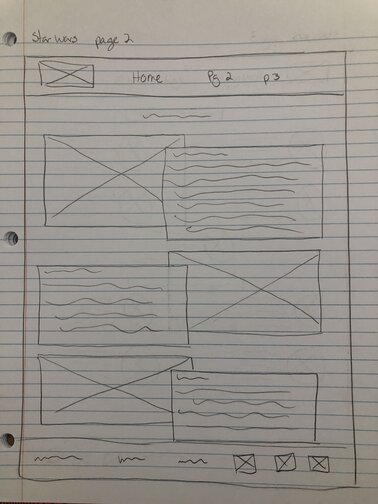 Star Wars page 2
Home Pg 2 p 3